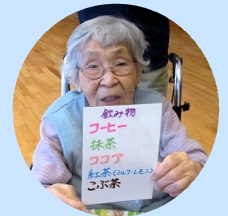 飲み物
コーヒー
抹茶
ココア
紅茶(ミルク・レモン)
こぶ茶